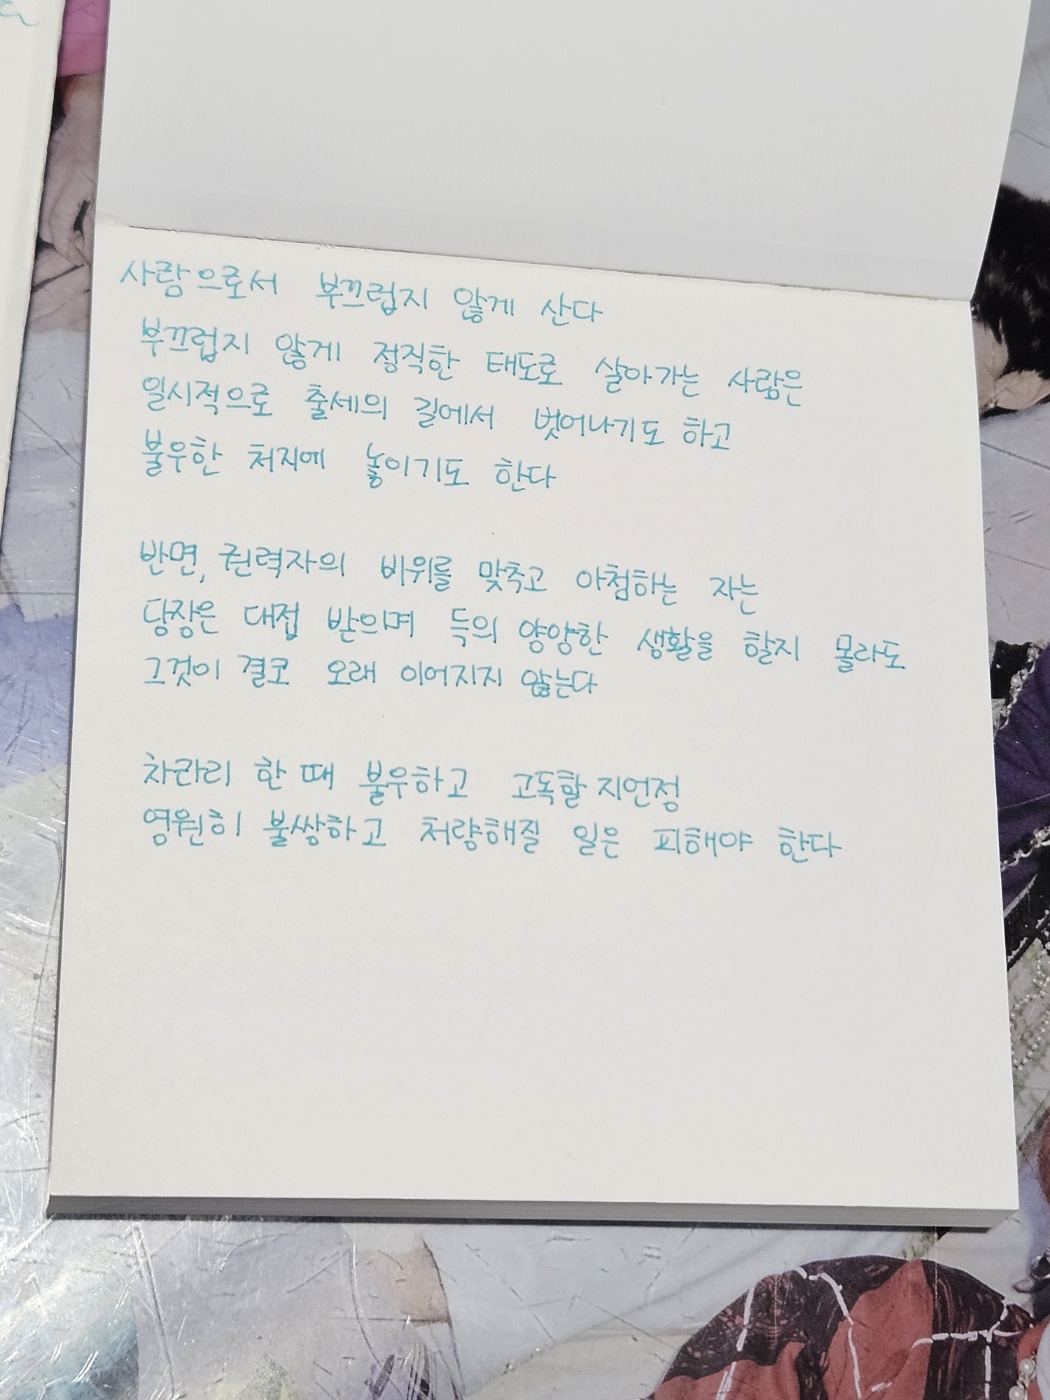 사람으로서 부끄럽지 않게 산다
부끄럽지 않게 정직한 태도로 살아가는 사람은
일시적으로 출세의 길에서 벗어나기도 하고
불우한 처지에 놓이기도 한다
반면, 권력자의 비위를 맞추고 아첨하는 자는
당장은 대접 받으며 득의 양양한 생활을 할지 몰라도
그것이 결코 오래 이어지지 않는다
차라리 한 때 불우하고 고독할지언정
영원히 불쌍하고 처량해질 일은 피해야 한다